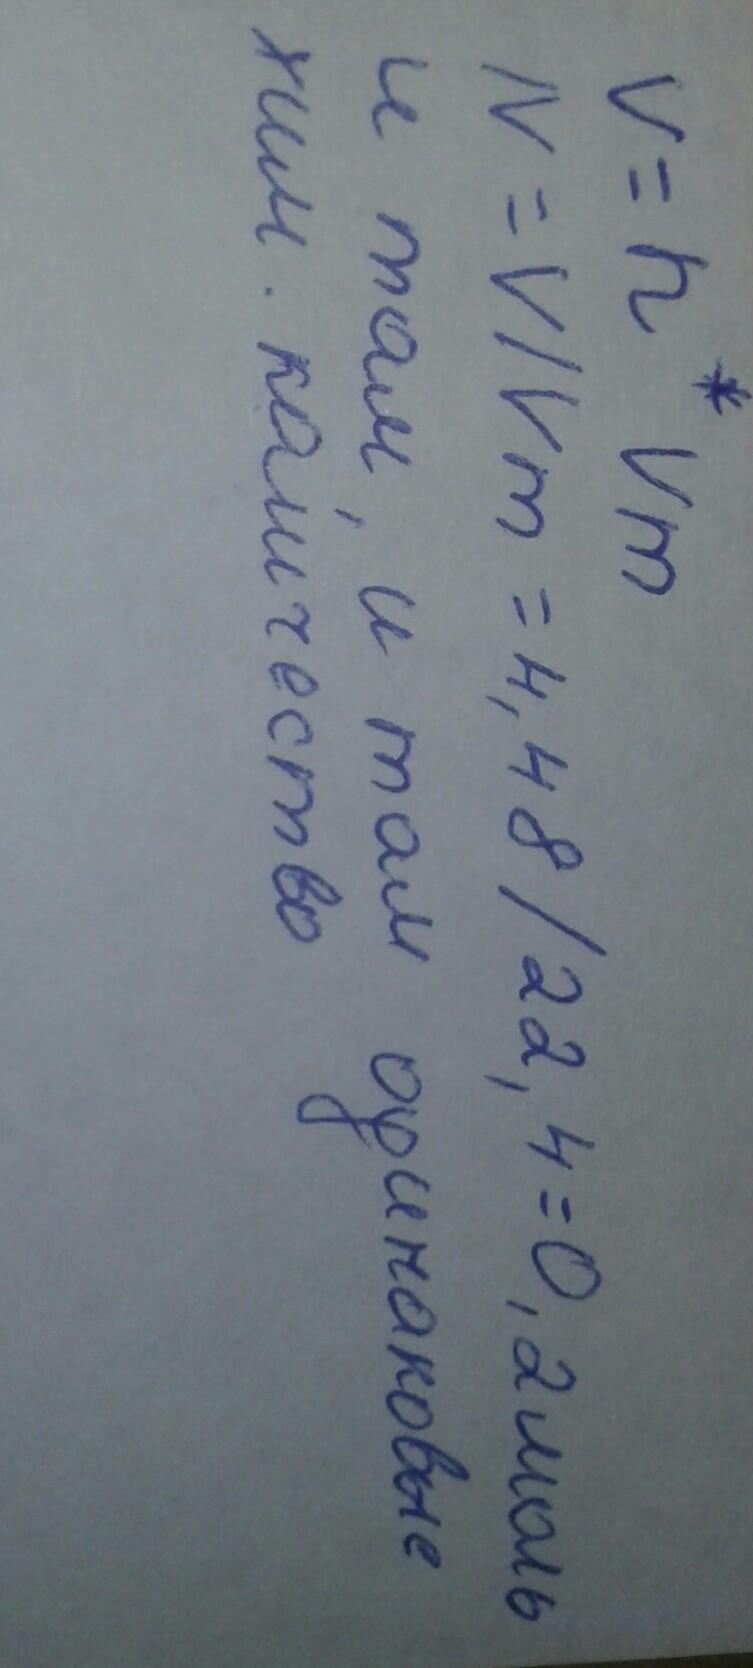 V = n * Vm
N = V / Vm = 4,48 / 22,4 = 0,2 моль
и там, и там одинаковые
хим. количество